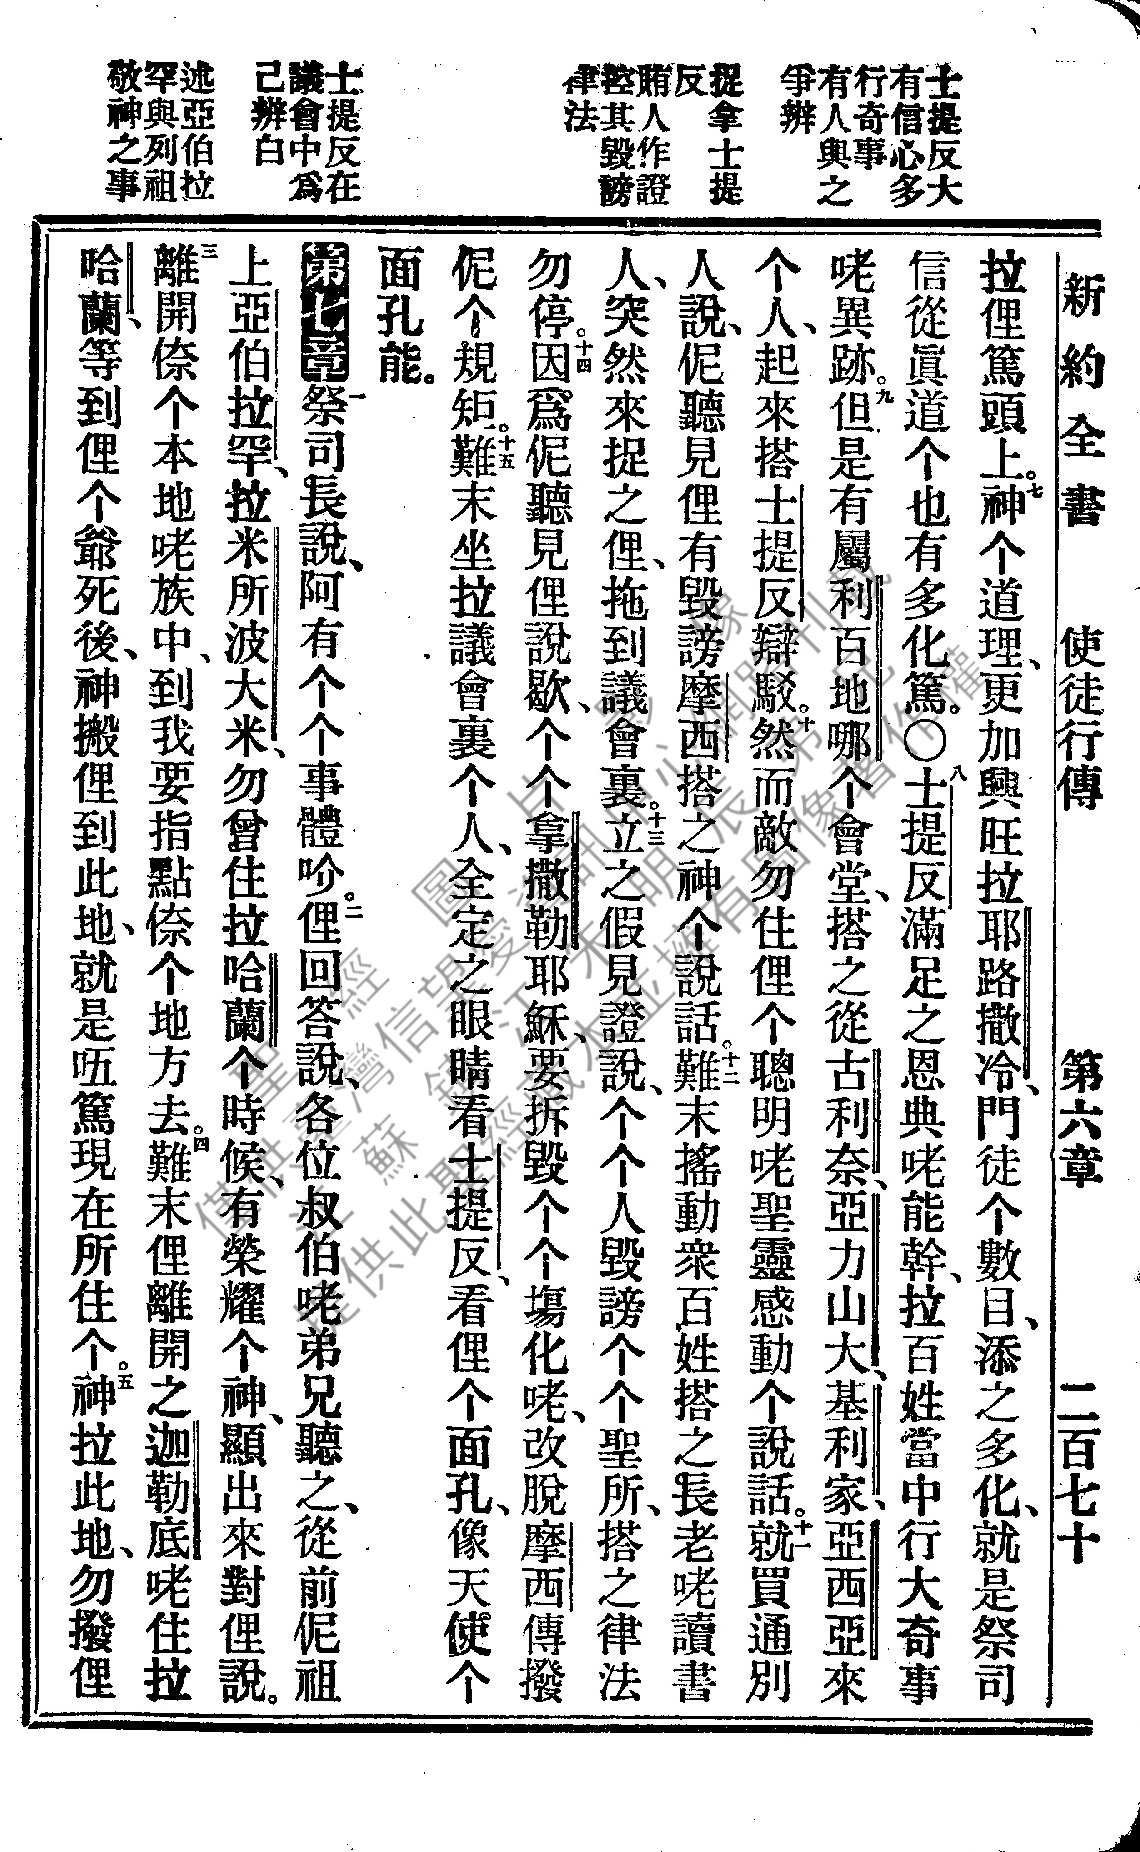 新約全書　使徒行傳　第六章　二百七十
士提反大
有信心多
行奇事
有人與之
爭辨
捉拿士提
反
賄人作證
控其毀謗
律法
士提反在
議會中爲
己辨白
述亞伯拉
罕與列祖
敬神之事
拉俚篤頭上。七神个道理、更加興旺拉耶路撒冷、門徒个數目、添之多化、就是祭司
信從眞道个也有多化篤。〇八士提反滿足之恩典咾能幹、拉百姓當中行大奇事
咾異跡。九但是有屬利百地哪个會堂、搭之從古利奈、亞力山大、基利家、亞西亞來
个人、起來搭士提反辯駁。十然而敵勿住俚个聰明咾聖靈感動个說話。十一就買通別
人說、伲聽見俚有毀謗摩西搭之神个說話。十二難末搖動衆百姓搭之長老咾讀書
人、突然來捉之俚、拖到議會裏。十三立之假見證說、个个人毀謗个个聖所、搭之律法
勿停。十四因爲伲聽見俚說歇、个个拿撒勒耶穌、要拆毀个个塲化咾、改脫摩西傳撥
伲个規矩。十五難末坐拉議會裏个人、全定之眼睛看士提反、看俚个面孔、像天使个
面孔能。
第七章一祭司長說、阿有个个事體吤。二俚回答說、各位叔伯咾弟兄聽之、從前伲祖
上亞伯拉罕、拉米所波大米、勿曾住拉哈蘭个時候、有榮耀个神、顯出來對俚說。
三離開倷个本地咾族中、到我要指點倷个地方去。四難末俚離開之迦勒底咾住拉
哈蘭、等到俚个爺死後、神搬俚到此地、就是㑚篤現在所住个。五神拉此地、勿撥俚